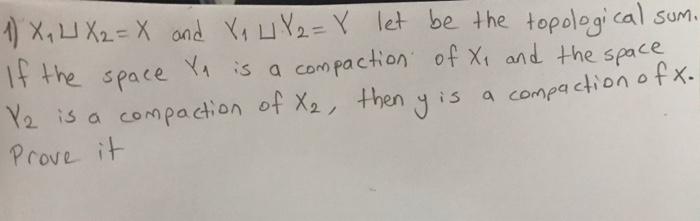 1) X₁ ⊔ X₂ = X and Y₁ ⊔ Y₂ = Y let be the topological sum.
If the space Y₁ is a compaction of X₁ and the space
Y₂ is a compaction of X₂, then y is a compaction of X.
Prove it